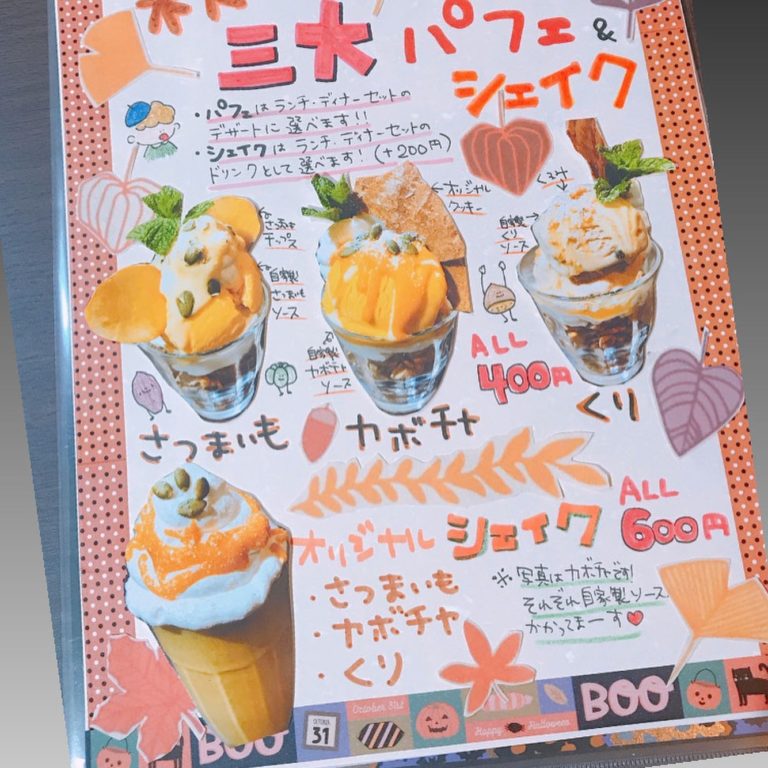 三大パフェ&
シェイク
・パフェはランチ・ディナーセットの
デザートに選べます!!
・シェイクはランチ・ディナーセットの
ドリンクとして選べます!(+200円)
さつま芋
チップス
自家製
さつまいも
ソース
オリジナル
クッキー
自家製
カボチャ
ソース
自家製
くり
ソース
ALL
400円
さつまいも
カボチャ
くり
オリジナル シェイク
ALL
600円
・さつまいも
・カボチャ
・くり
※写真はカボチャです!
それぞれ自家製ソース
かかってまーす♥
BOO
OCTOBER
31
October 31st
Happy Halloween
BOO